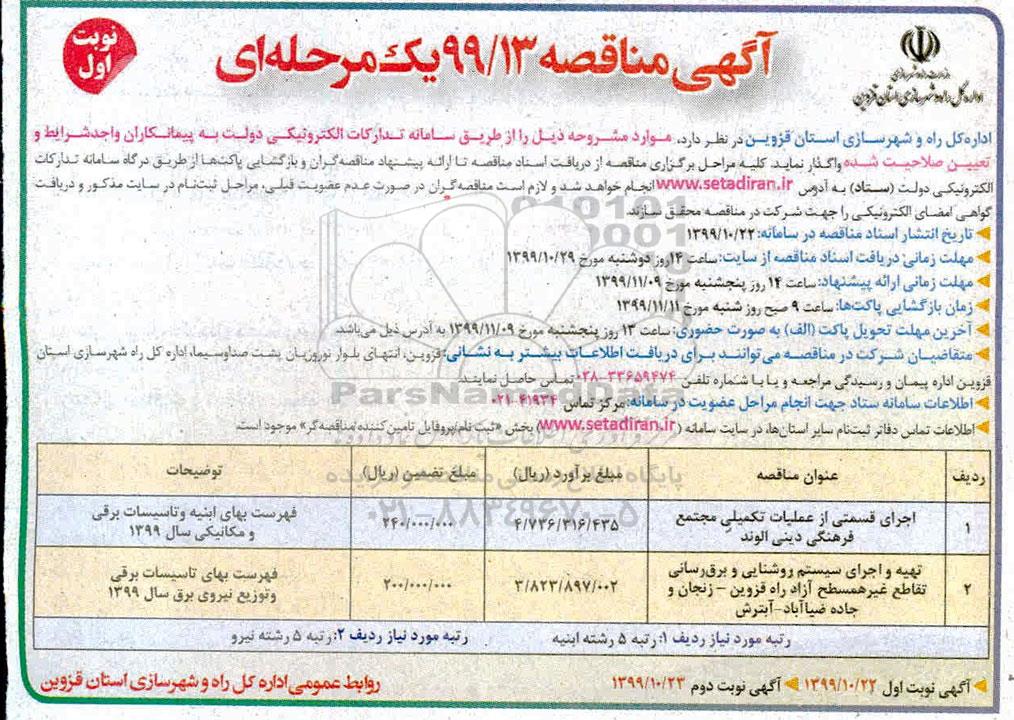 نوبت اول
آگهی مناقصه ۹۹/۱۳ یک مرحله‌ای
وزارت راه و شهرسازی
اداره کل راه و شهرسازی استان قزوین
اداره کل راه و شهرسازی استان قزوین در نظر دارد، موارد مشروحه ذیل را از طریق سامانه تدارکات الکترونیکی دولت به پیمانکاران واجدشرایط و
تعیین صلاحیت شده واگذار نماید. کلیه مراحل برگزاری مناقصه از دریافت اسناد مناقصه تا ارائه پیشنهاد مناقصه‌گران و بازگشایی پاکت‌ها از طریق درگاه سامانه تدارکات
الکترونیکی دولت (ستاد) به آدرس www.setadiran.ir انجام خواهد شد و لازم است مناقصه‌گران در صورت عدم عضویت قبلی، مراحل ثبت‌نام در سایت مذکور و دریافت
گواهی امضای الکترونیکی را جهت شرکت در مناقصه محقق سازند.
تاریخ انتشار اسناد مناقصه در سامانه: ۱۳۹۹/۱۰/۲۲
مهلت زمانی دریافت اسناد مناقصه از سایت: ساعت ۱۴ روز دوشنبه مورخ ۱۳۹۹/۱۰/۲۹
مهلت زمانی ارائه پیشنهاد: ساعت ۱۴ روز پنجشنبه مورخ ۱۳۹۹/۱۱/۰۹
زمان بازگشایی پاکت‌ها: ساعت ۹ صبح روز شنبه مورخ ۱۳۹۹/۱۱/۱۱
آخرین مهلت تحویل پاکت (الف) به صورت حضوری: ساعت ۱۳ روز پنجشنبه مورخ ۱۳۹۹/۱۱/۰۹ به آدرس ذیل می‌باشد.
متقاضیان شرکت در مناقصه می‌توانند برای دریافت اطلاعات بیشتر به نشانی: قزوین، انتهای بلوار نوروزیان پشت صداوسیما، اداره کل راه شهرسازی استان
قزوین اداره پیمان و رسیدگی مراجعه و یا با شماره تلفن ۳۳۶۵۹۴۷۴-۰۲۸ تماس حاصل نمایند.
اطلاعات سامانه ستاد جهت انجام مراحل عضویت در سامانه: مرکز تماس ۴۱۹۳۴-۰۲۱
اطلاعات تماس دفاتر ثبت‌نام سایر استان‌ها، در سایت سامانه (www.setadiran.ir) بخش «ثبت نام/پروفایل تامین کننده/مناقصه‌گر» موجود است.
ردیف | عنوان مناقصه | مبلغ برآورد (ریال) | مبلغ تضمین (ریال) | توضیحات
۱ | اجرای قسمتی از عملیات تکمیلی مجتمع فرهنگی دینی الوند | ۴/۷۳۶/۳۱۶/۴۳۵ | ۲۴۰/۰۰۰/۰۰۰ | فهرست بهای ابنیه وتاسیسات برقی و مکانیکی سال ۱۳۹۹
۲ | تهیه و اجرای سیستم روشنایی و برق‌رسانی تقاطع غیرهمسطح آزاد راه قزوین - زنجان و جاده ضیاآباد-آبترش | ۳/۸۲۳/۸۹۷/۰۰۲ | ۲۰۰/۰۰۰/۰۰۰ | فهرست بهای تاسیسات برقی وتوزیع نیروی برق سال ۱۳۹۹
رتبه مورد نیاز ردیف ۱: رتبه ۵ رشته ابنیه رتبه مورد نیاز ردیف ۲: رتبه ۵ رشته نیرو
آگهی نوبت اول ۱۳۹۹/۱۰/۲۲ آگهی نوبت دوم ۱۳۹۹/۱۰/۲۳
روابط عمومی اداره کل راه و شهرسازی استان قزوین
ParsNamadData
۰۲۱-۸۸۳۴۹۶۷۰-۵